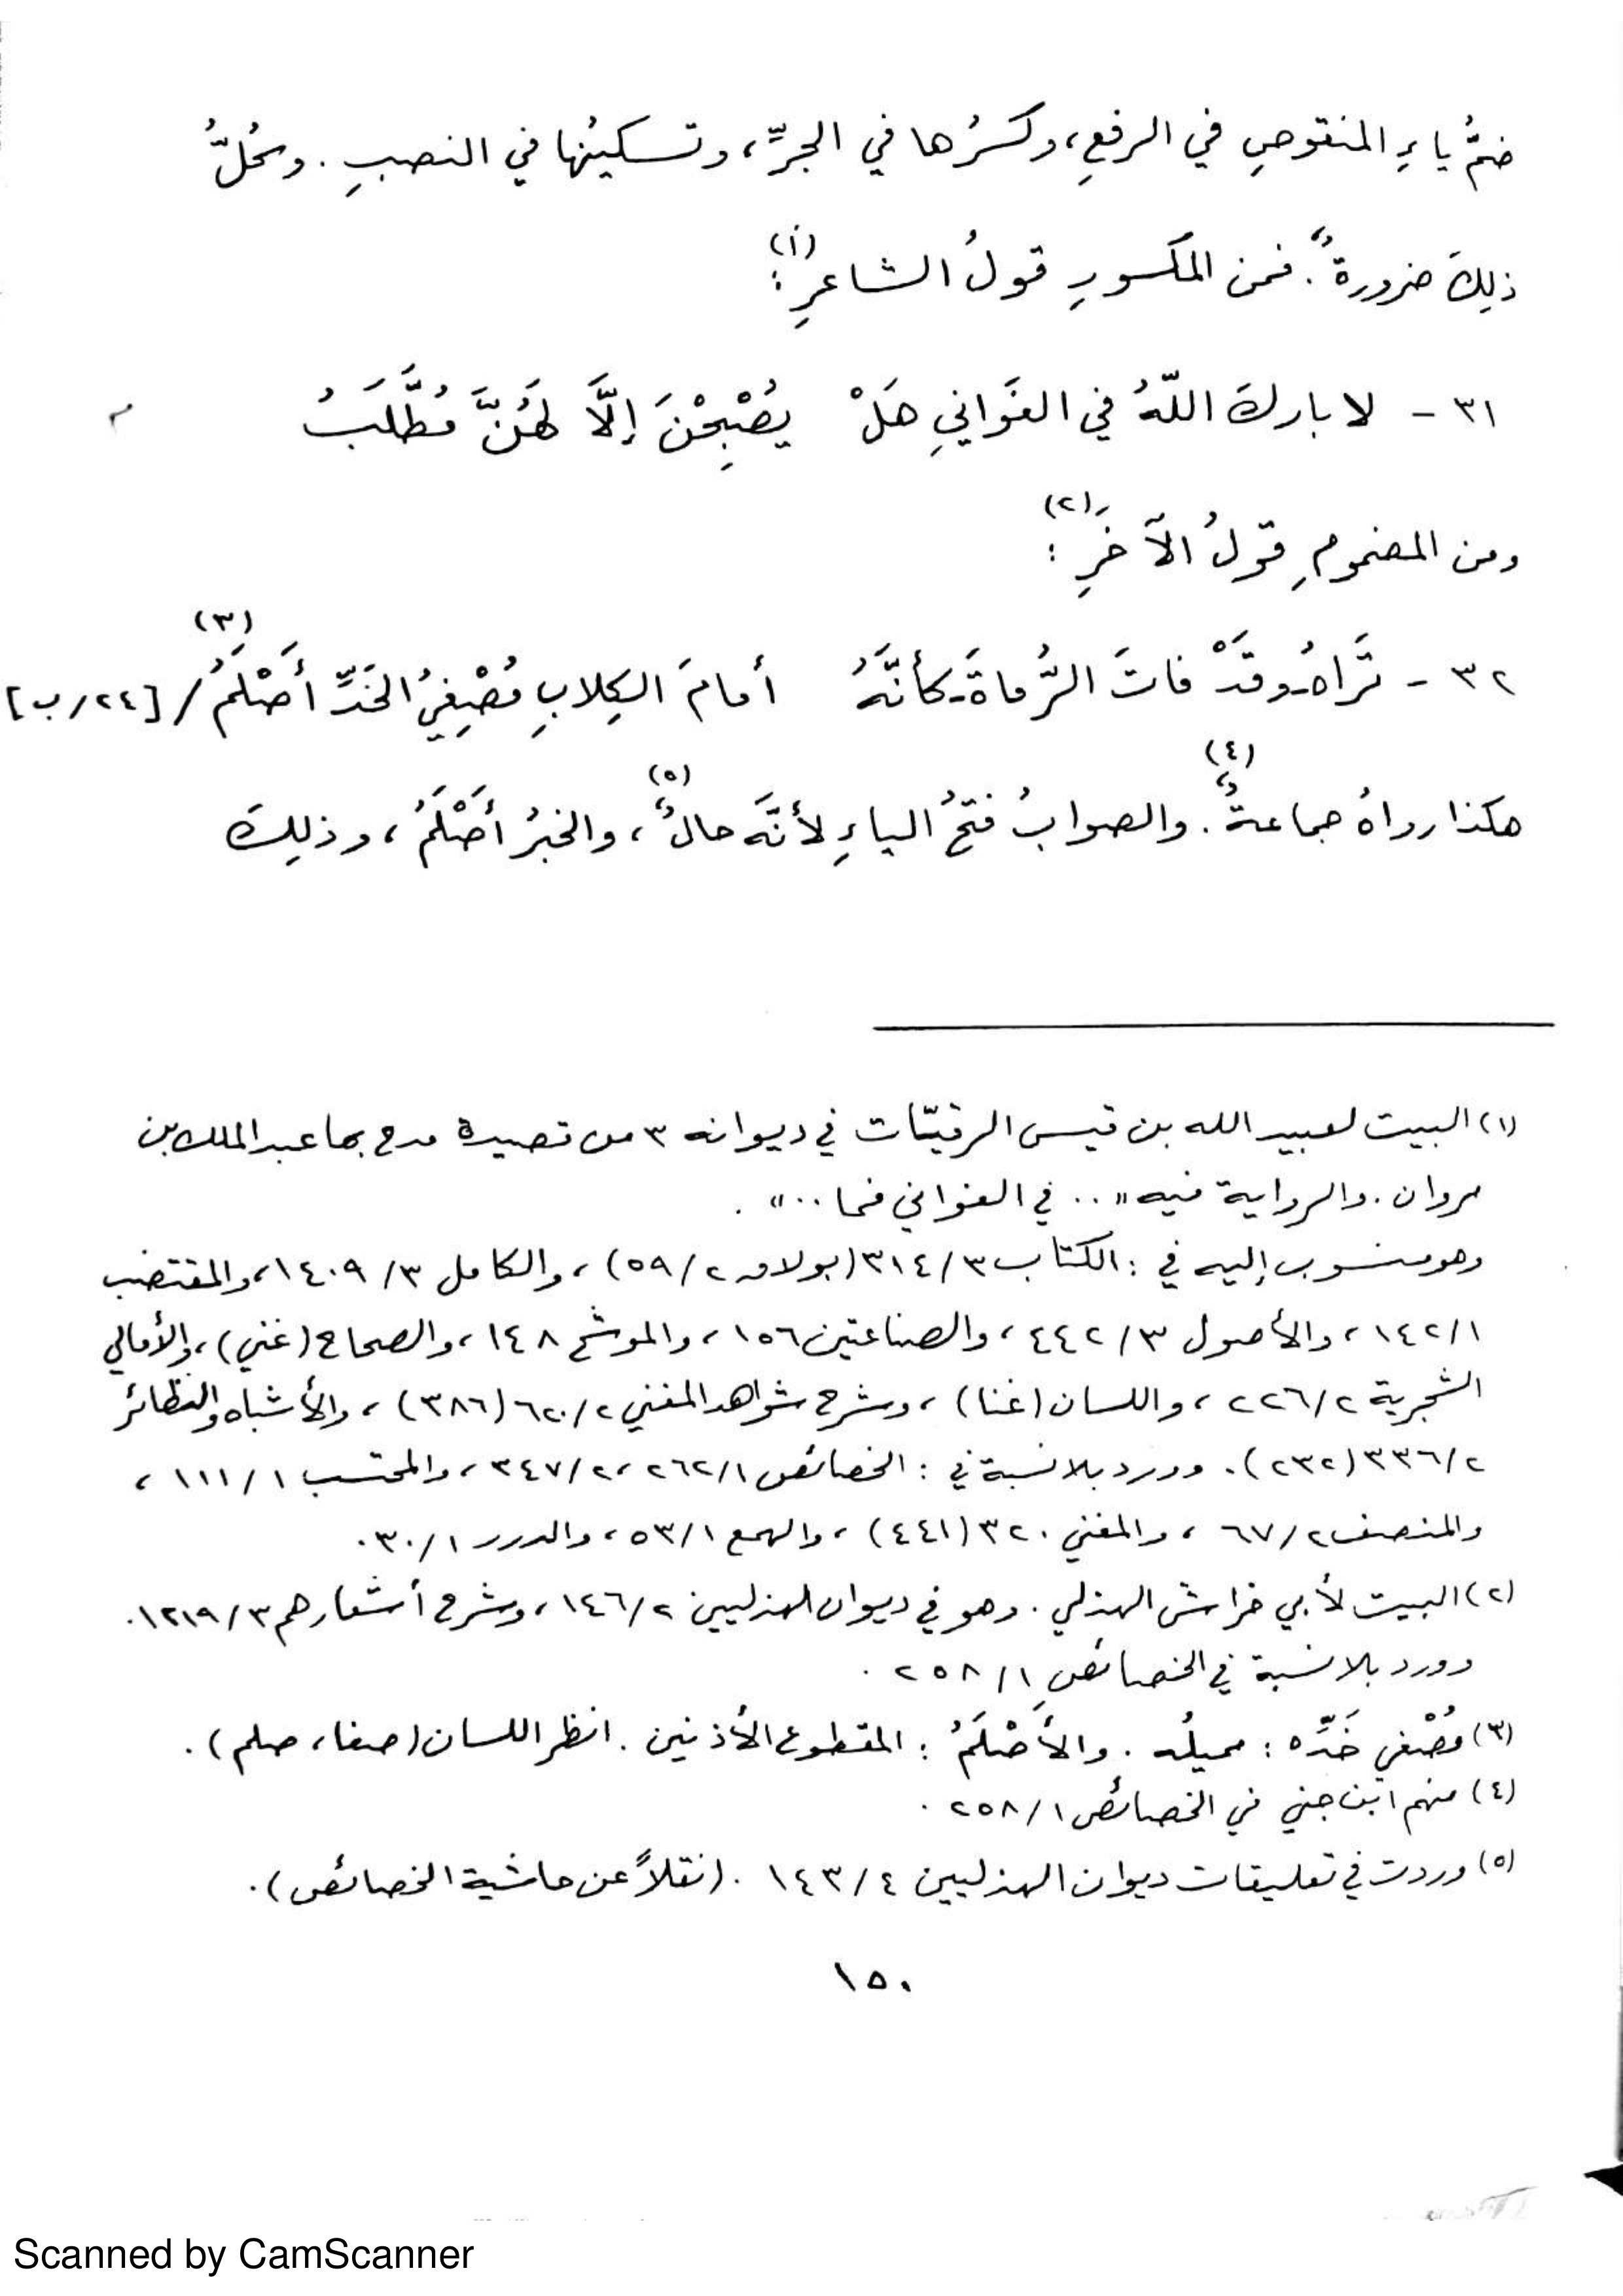 ضمُّ ياءِ المنقوصِ في الرفعِ، وكسرُها في الجرِّ، وتسكينُها في النصبِ. وكُلُّ
ذلِكَ ضرورةٌ. فمن المكسورِ قولُ الشاعرِ(١):
٣١ - لا باركَ اللّهُ في الغَوانيِ هَلْ يُصْبِحْنَ إلَّا لَهُنَّ مُطَّلَبُ
ومن المضمومِ قولُ الآخَرِ(٢):
٣٢ - تَراهُ - وقَدْ فاتَ الرُّماةَ - كأنَّهُ أمامَ الكِلابِ مُصْغِيُ الخَدِّ أَصْلَمُ(٣)/ [٢٤/ب]
هكذا رواهُ جماعةٌ(٤). والصوابُ فتحُ الياءِ لأنَّه حالٌ(٥)، والخبرُ أَصْلَمُ، وذلِكَ
(١) البيت لعبيد الله بن قيس الرقيّات في ديوانه ٣ من قصيدة مدح بها عبد الملك بن
مروان. والرواية فيه ".. في الغواني فما ..".
وهو منسوب إليه في: الكتاب ٣/٣١٤ (بولاق ٢/٥٩)، والكامل ٣/١٤٠٩، والمقتضب
١/١٤٢، والأصول ٣/٤٤٢، والصناعتين ١٥٦، والموشح ١٤٨، والصحاح (غني)، والأمالي
الشجرية ٢/٢٢٦، واللسان (غنا)، وشرح شواهد المغني ٢/٦٢٠ (٣٨٦)، والأشباه والنظائر
٢/٣٣٦ (٢٣٢). وورد بلا نسبة في: الخصائص ١/٢٦٢، ٢/٣٤٧، والمحتسب ١/١١١،
والمنصف ٢/٦٧، والمغني ٣٢٠ (٤٤١)، والهمع ١/٥٣، والدرر ١/٣٠.
(٢) البيت لأبي خراش الهذلي. وهو في ديوان الهذليين ٢/١٤٦، وشرح أشعارهم ٣/١٢١٩.
وورد بلا نسبة في الخصائص ١/٢٥٨.
(٣) مُصْغي خَدَّه: مميلُه. والأَصْلَمُ: المقطوع الأذنين. انظر اللسان (صغا، صلم).
(٤) منهم ابن جني في الخصائص ١/٢٥٨.
(٥) وردت في تعليقات ديوان الهذليين ٤/١٤٣. (نقلاً عن حاشية الخصائص).
١٥٠
Scanned by CamScanner